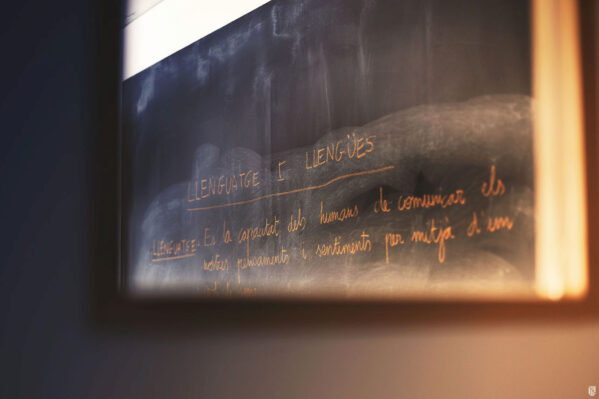 LLENGUATGE I LLENGÜES
LLENGUATGE: Es la capacitat dels humans de comunicar els
nostres pensaments i sentiments per mitjà d'un